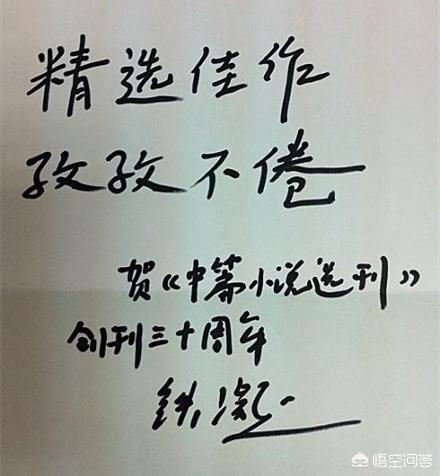 精选佳作
孜孜不倦
贺《中篇小说选刊》
创刊三十周年
铁凝
悟空问答